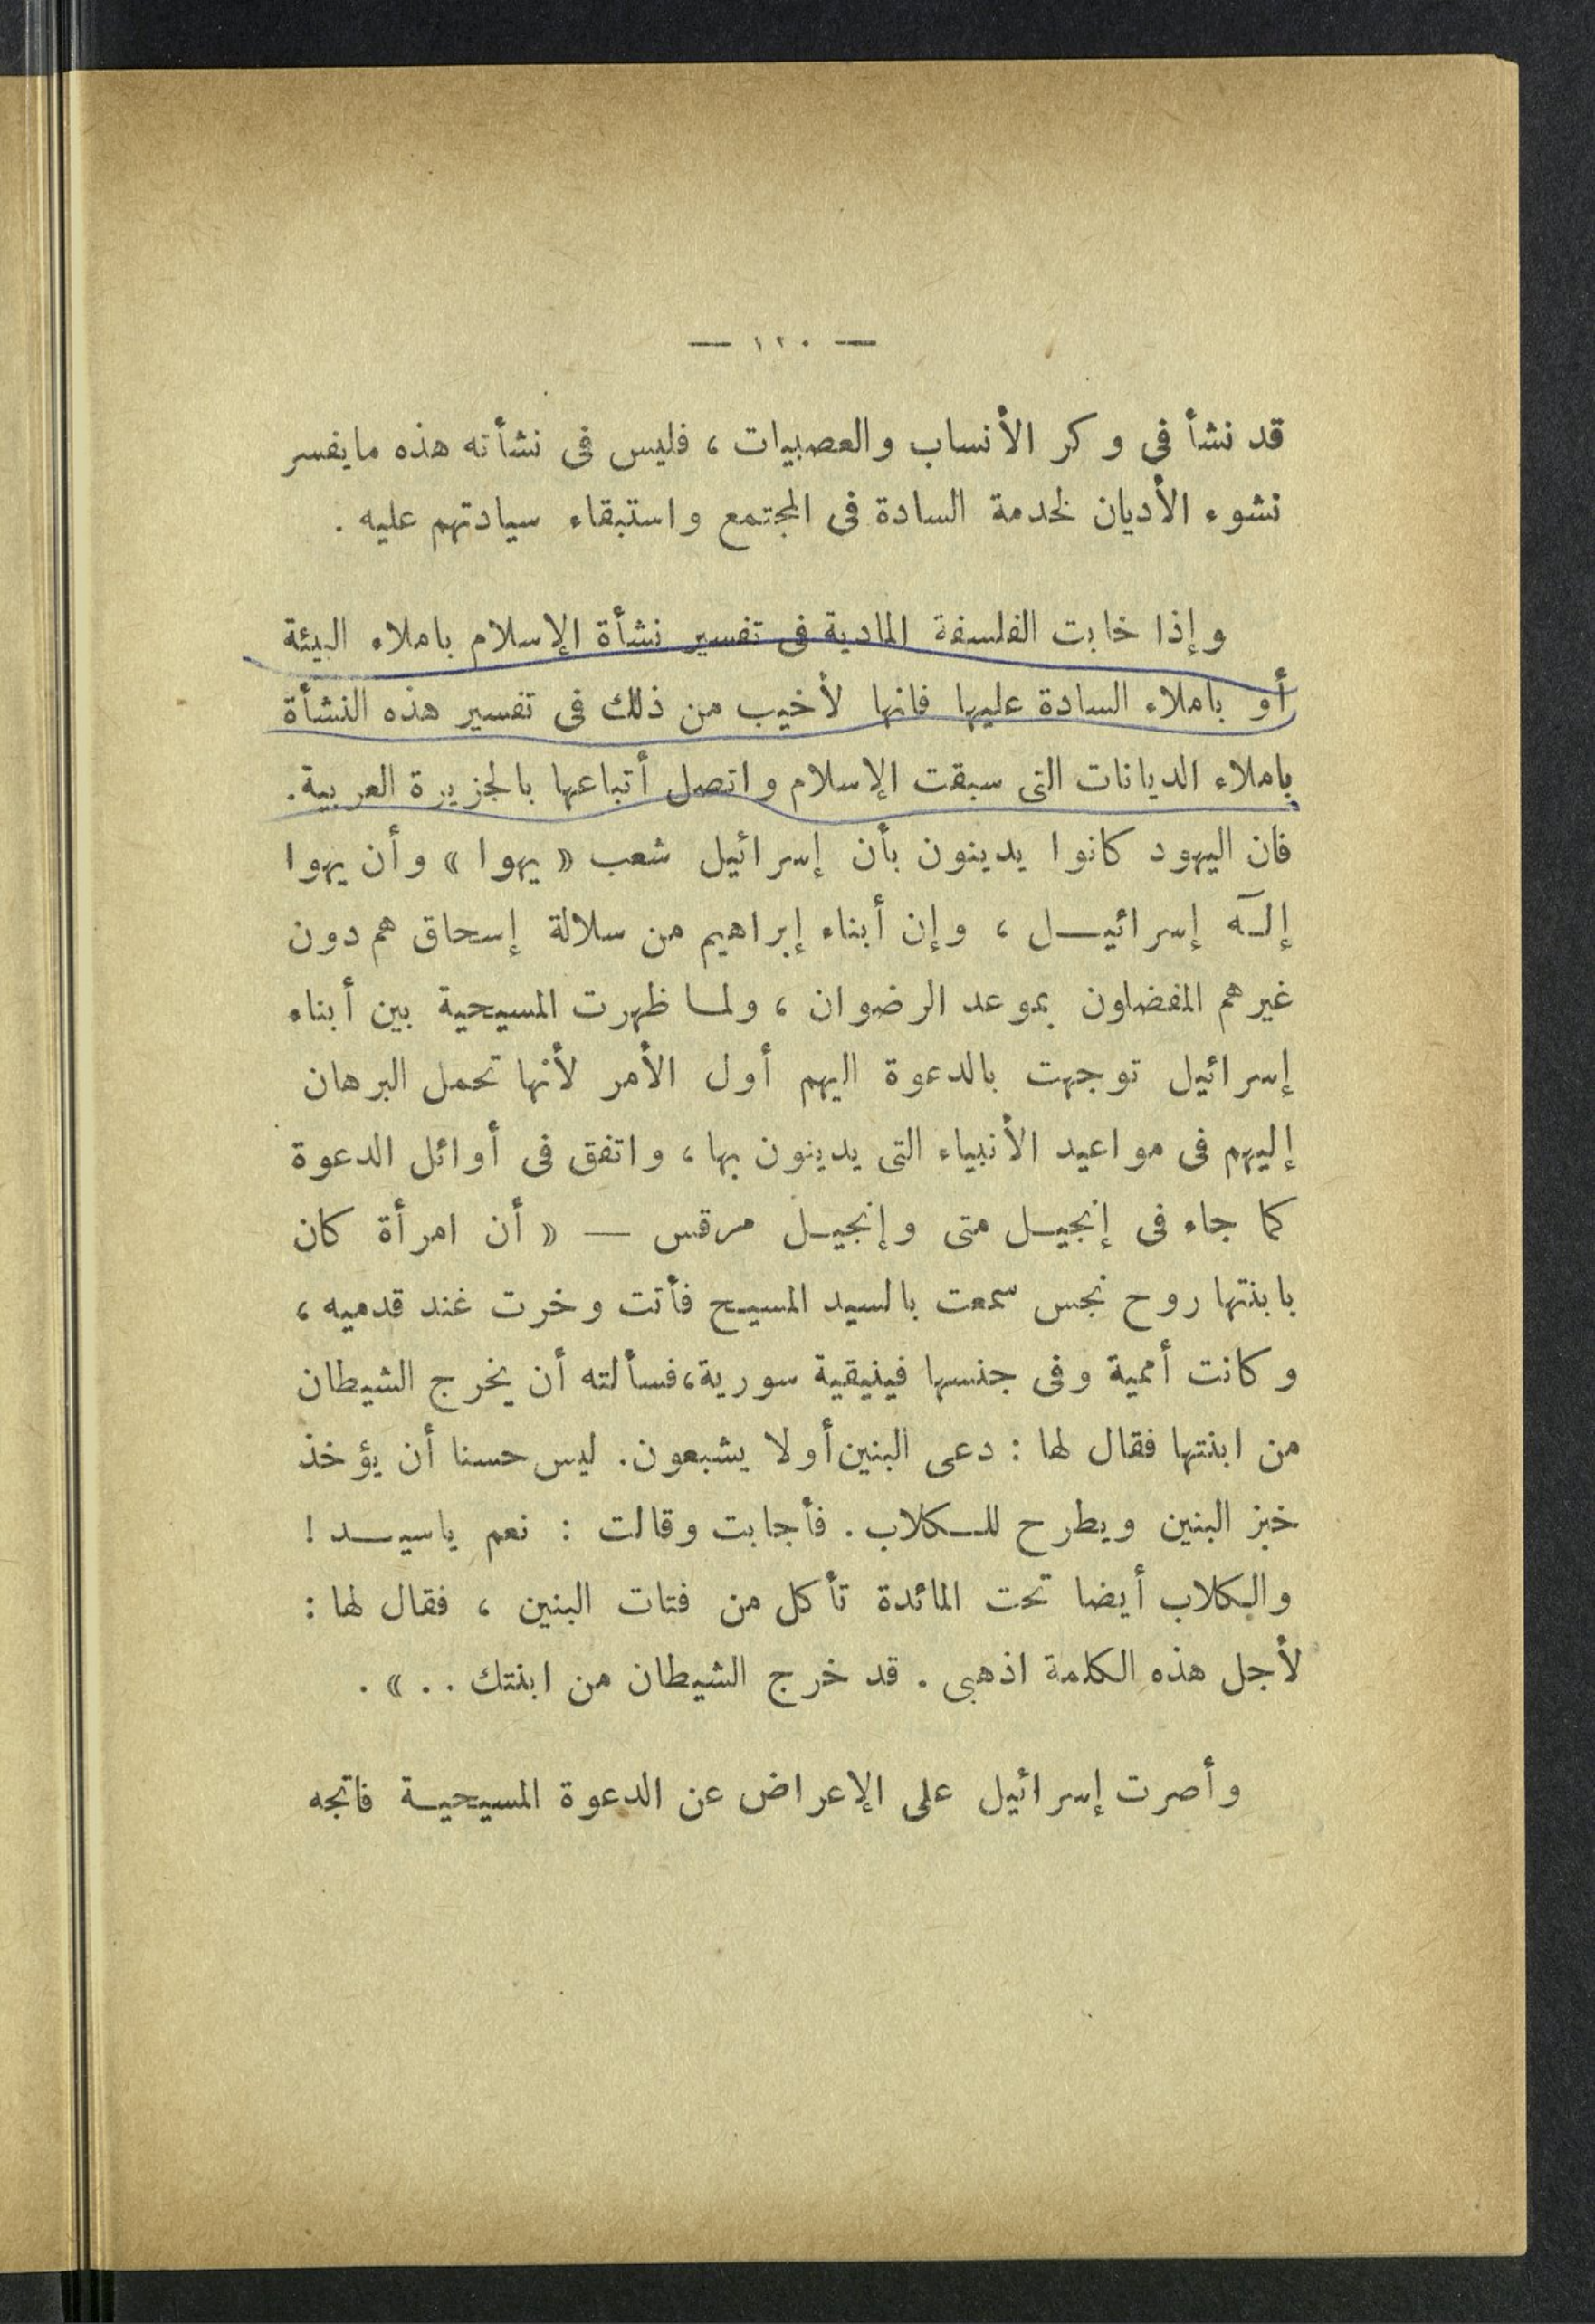 — ١٢٠ —
قد نشأ فى وكر الأنساب والعصبيات ، فليس فى نشأته هذه مايفسر
نشوء الأديان لخدمة السادة فى المجتمع واستبقاء سيادتهم عليه .
وإذا خابت الفلسفة المادية فى تفسير نشأة الإسلام باملاء البيئة
أو باملاء السادة عليها فانها لأخيب من ذلك فى تفسير هذه النشأة
باملاء الديانات التى سبقت الإسلام واتصل أتباعها بالجزيرة العربية.
فان اليهود كانوا يدينون بأن إسرائيل شعب « يهوا » وأن يهوا
إلـٓه إسرائيــل ، وإن أبناء إبراهيم من سلالة إسحاق هم دون
غيرهم المفضلون بموعد الرضوان ، ولمـا ظهرت المسيحية بين أبناء
إسرائيل توجهت بالدعوة اليهم أول الأمر لأنها تحمل البرهان
إليهم فى مواعيد الأنبياء التى يدينون بها ، واتفق فى أوائل الدعوة
كما جاء فى إنجيـل متى وإنجيـل مرقس — « أن امرأة كان
بابنتها روح نجس سمعت بالسيد المسيح فأتت وخرت غند قدميه ،
وكانت أممية وفى جنسها فينيقية سورية،فسألته أن يخرج الشيطان
من ابنتها فقال لها : دعى البنين أولا يشبعون. ليس حسنا أن يؤخذ
خبز البنين ويطرح للــكلاب . فأجابت وقالت : نعم ياسيــد !
والكلاب أيضا تحت المائدة تأكل من فتات البنين ، فقال لها :
لأجل هذه الكلمة اذهبى . قد خرج الشيطان من ابنتك . . » .
وأصرت إسرائيل على الإعراض عن الدعوة المسيحيـة فاتجه